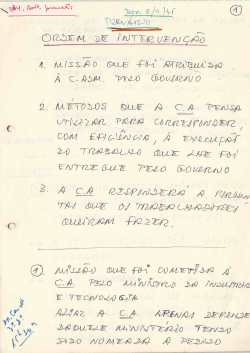 ①
PLENÁRIO
ORDEM DE INTERVENÇÃO
1. MISSÃO QUE FOI ATRIBUIDA
À C. ADM. PELO GOVERNO
2. MÉTODOS QUE A C.A. PENSA
UTILIZAR PARA CORRESPONDER,
COM EFICIÊNCIA, À EXECUÇÃO
DO TRABALHO QUE LHE FOI
ENTREGUE PELO GOVERNO
3. A C.A. RESPONDERÁ A PERGUN-
TAS QUE OS TRABALHADORES
QUEIRAM FAZER.
① MISSÃO QUE FOI COMETIDA À
C.A. PELO MINISTRO DA INDUSTRIA
E TECNOLOGIA
ALIÁS A C.A. APENAS DEPENDE
DAQUELE MINISTERIO TENDO
SIDO NOMEADA A PEDIDO